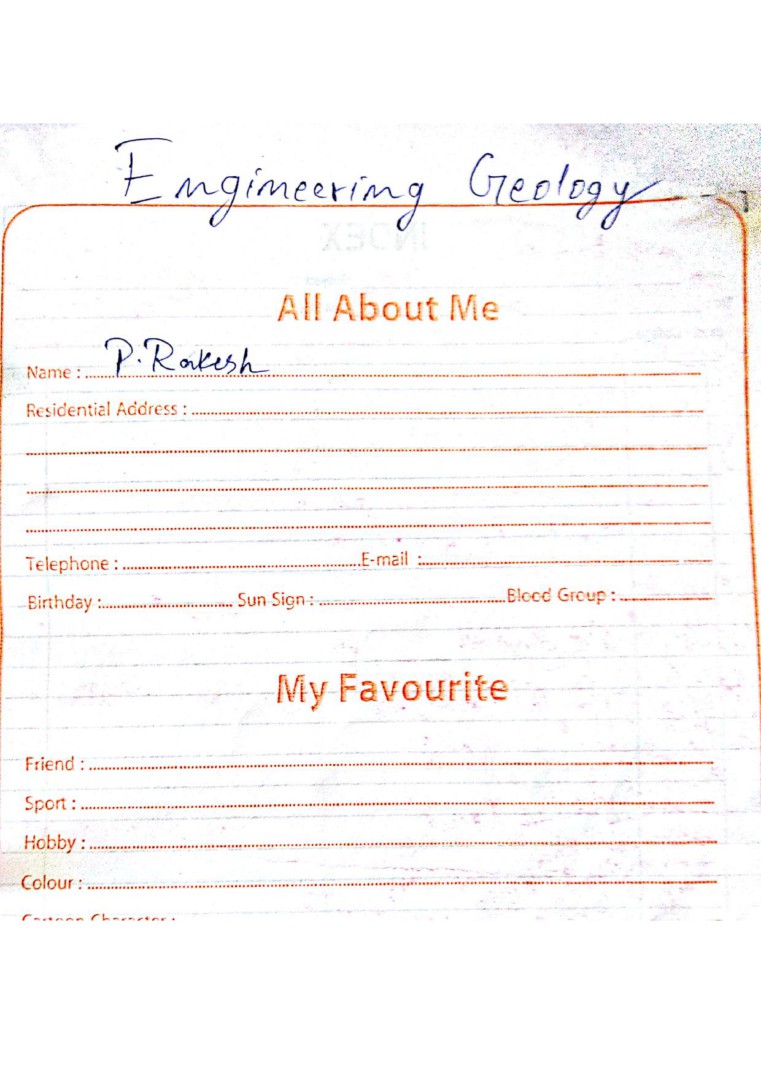 Engineering Geology
INDEX
All About Me
Name : P. Rakesh
Residential Address :
Telephone : E-mail :
Birthday : Sun Sign : Blood Group :
My Favourite
Friend :
Sport :
Hobby :
Colour :
Cartoon Character :